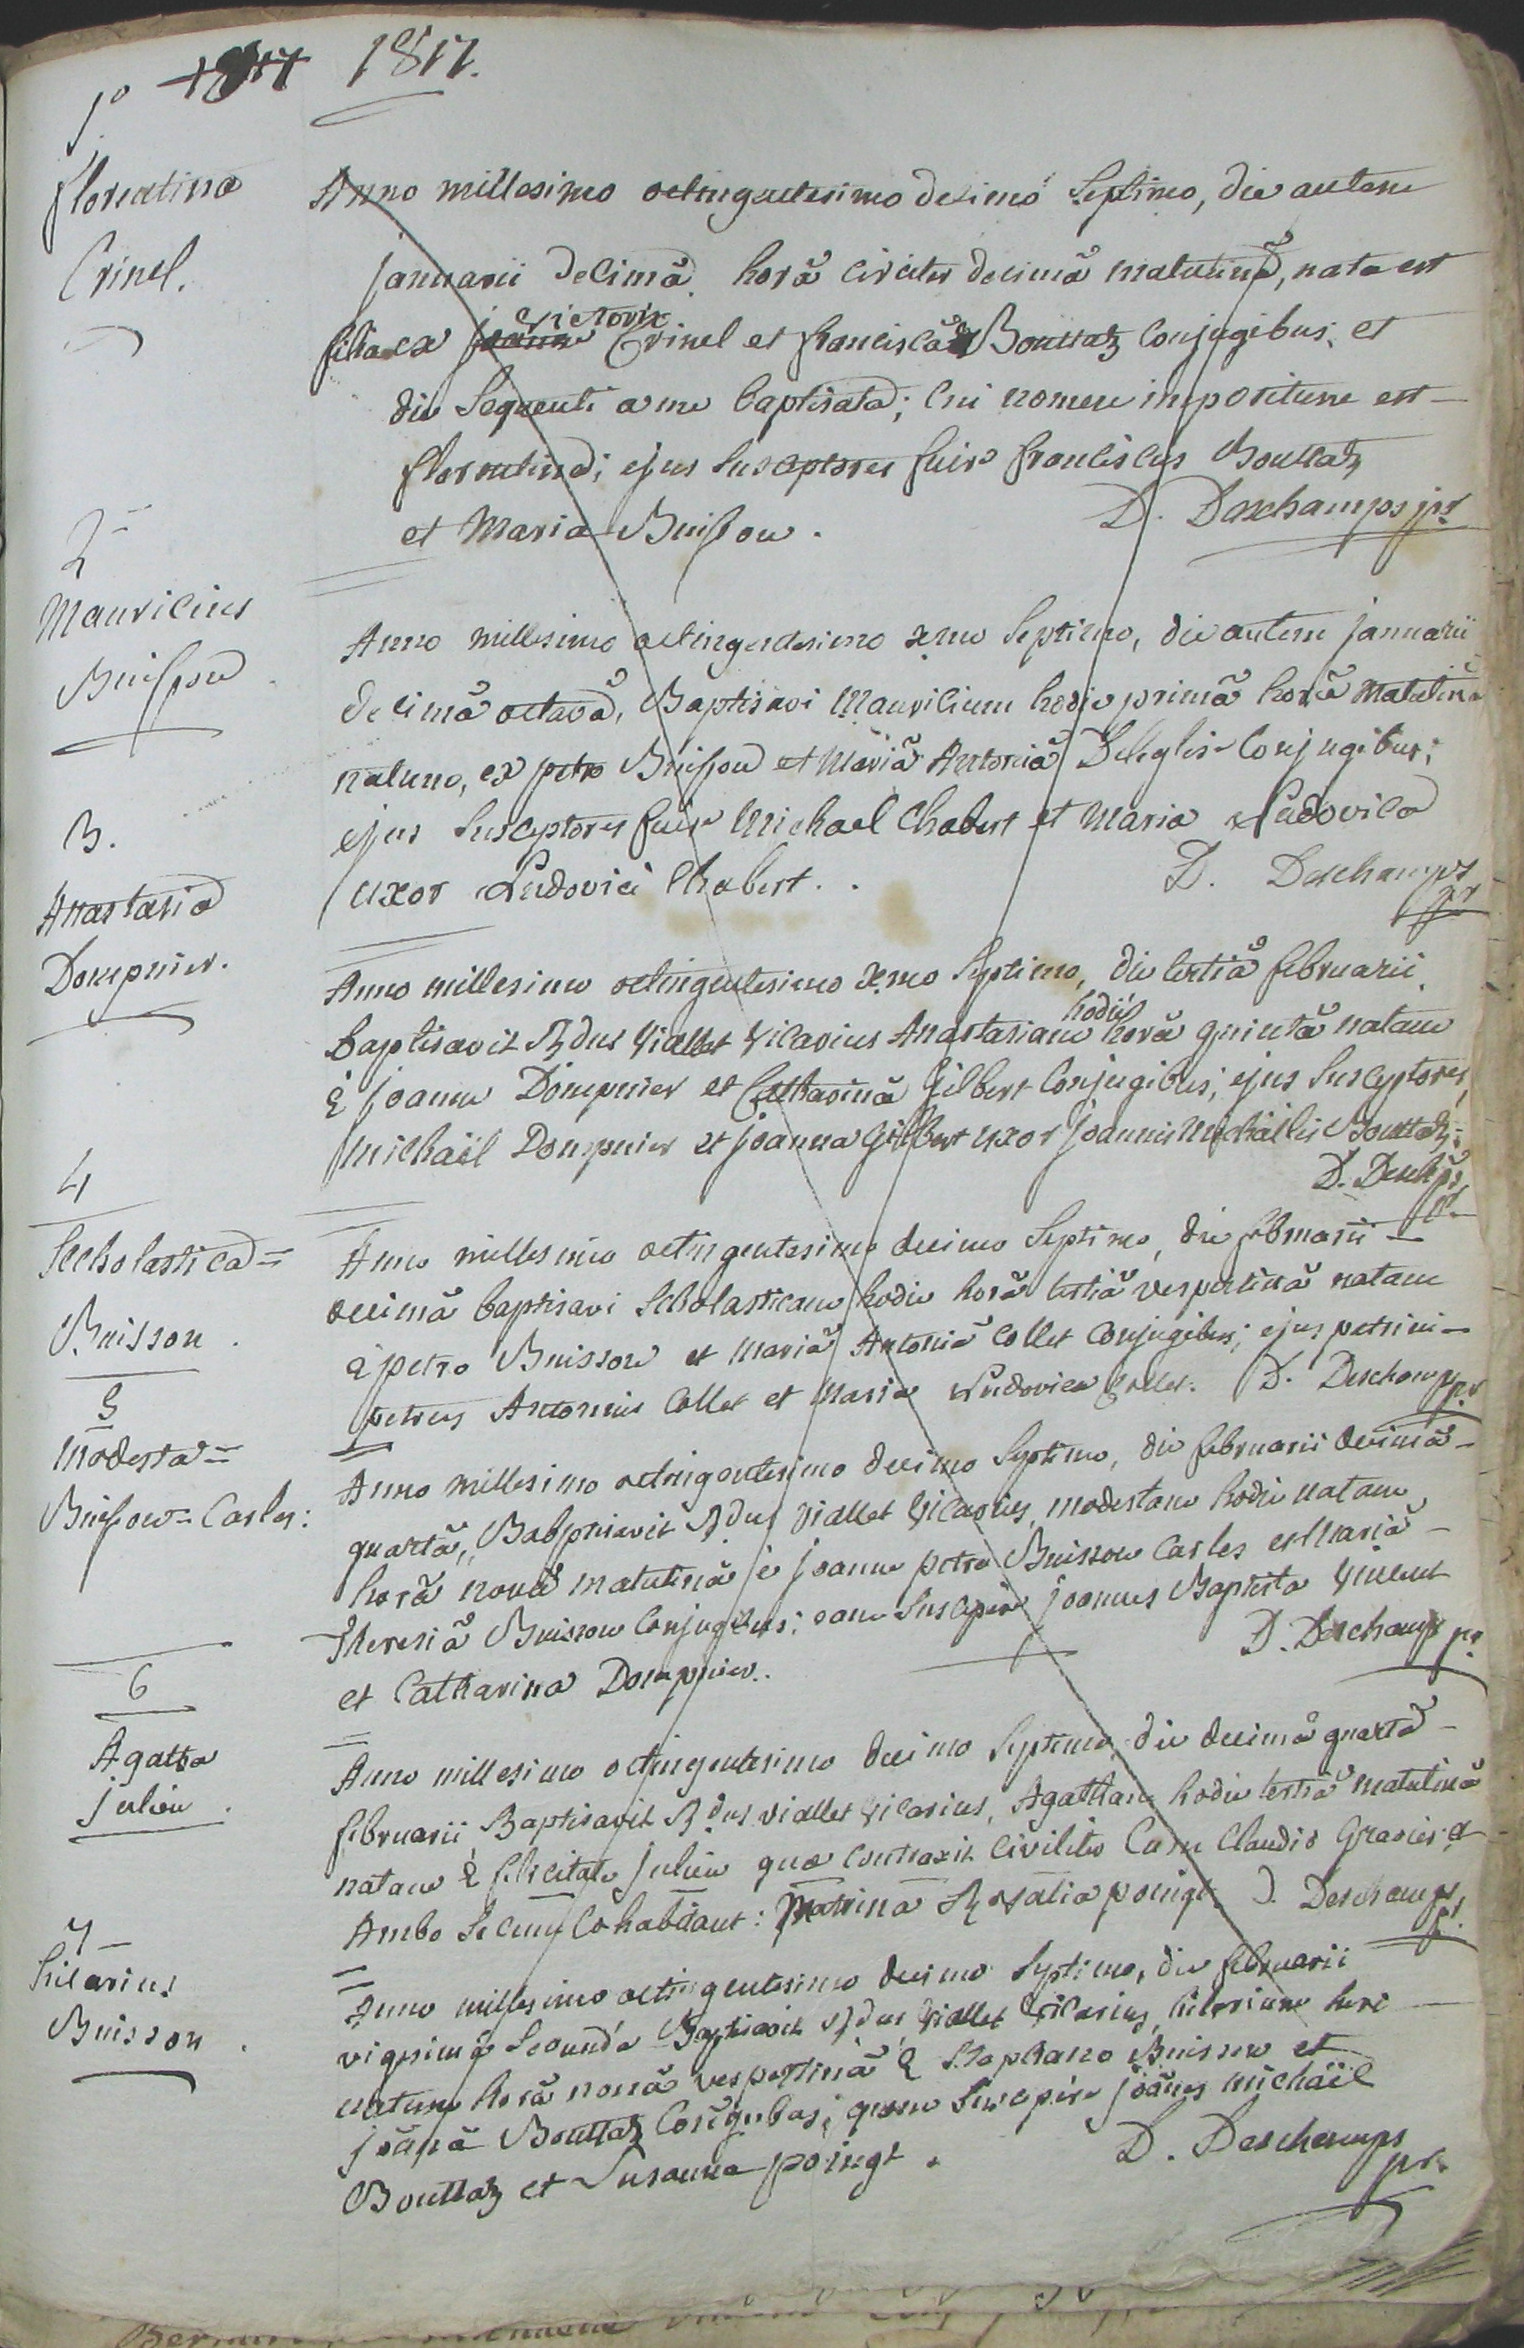 1817.
1º
florentina
Crinel.
Anno millesimo octingentesimo decimo septimo, die autem
januarii decimâ horâ circiter decimâ matutinâ, nata est
filia ex victorix Crinel et franciscâ Bouttaz conjugibus; et
die sequenti a me baptisata; cui nomen impositum est
florentina; ejus susceptores fuire franciscus Bouttaz
et Maria Buisson.
D. Deschamps pr
2
Mauricius
Buisson
Anno millesimo octingentesimo xmo septimo, die autem januarii
decimâ octavâ, Baptisavi Mauricium hodie primâ horâ matutinâ
natum, ex petro Buisson et Mariâ Antoniâ Deléglise conjugibus;
ejus susceptores fuire Michael Chabert et Maria Ludovica
uxor Ludovici Chabert..
D. Deschamps
pr
3.
Anastasia
Dompnier.
Anno millesimo octingentesimo xmo septimo, die tertiâ februarii
baptisavit Rdus Viallet vicarius Anastasiam hodiè horâ quintâ natam
è joanne Dompnier et Catharinâ Gilbert conjugibus; ejus susceptores
Michaël Dompnier et joanna Gilbert uxor joannis Michaëlis Bouttaz;
D. Desch̃ps
pr
4
Scholastica =
Buisson.
Anno millesimo octingentesimo decimo septimo, die februarii
decimâ baptisavi Scholasticam hodie horâ tertiâ vespertinâ natam
è petro Buisson et Mariâ Antoniâ Collet conjugibus; ejus patrini
petrus Antonius Collet et Maria Ludovica Collet. D. Deschamps
pr
5
Modesta =
Buisson = Carles:
Anno millesimo octingentesimo decimo septimo, die februarii decimâ
quartâ, Babptisavit Rdus Viallet vicarius, modestam hodie natam
horâ nonâ matutinâ è joanne petro Buisson Carles et Mariâ
Theresiâ Buisson conjugibus; eam suscepere joannes Baptista Vincent
et Catharina Dompnier..
D. Deschamps pr
6
Agatha
julien.
Anno millesimo octingentesimo decimo septimo, die decimâ quartâ
februarii Baptisavit Rdus viallet vicarius, Agatham hodie tertiâ matutinâ
natam è felicitate julien quæ contraxit civiliter cum Claudio Gravier; et
Ambo secum cohabitant: Matrina Rosalia poingt. D. Deschamps
pr.
7
hilarius
Buisson.
Anno millesimo octingentesimo decimo septimo, die februarii
vigesimâ secundâ Baptisavit Rdus Viallet vicarius, hilarium heri
natum horâ nonâ vespertinâ è Stephano Buisson et
joãnâ Bouttaz conjugibus; quem suscepére joãnes michäël
Bouttaz et Susanna poingt.
D. Deschamps
pr.